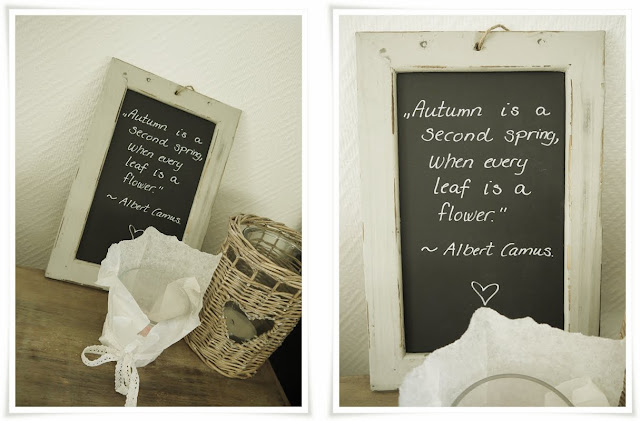 „Autumn is a
second spring,
when every
leaf is a
flower."
~ Albert Camus.
„Autumn is a
second spring,
when every
leaf is a
flower."
~ Albert Camus.